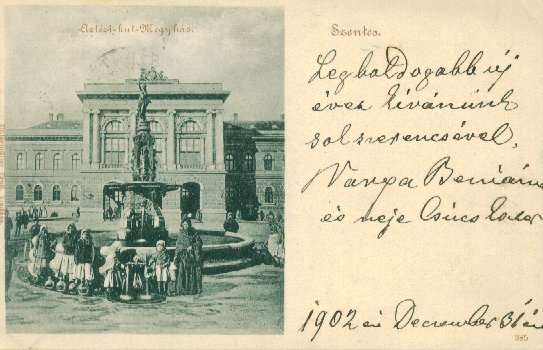 Artézi-kut-Megyház.
Szentes.
Legboldogabb új
évet kívánunk
sok szerencsével,
Varga Beniám
és neje Csúcs
1902 én December 31 én
385